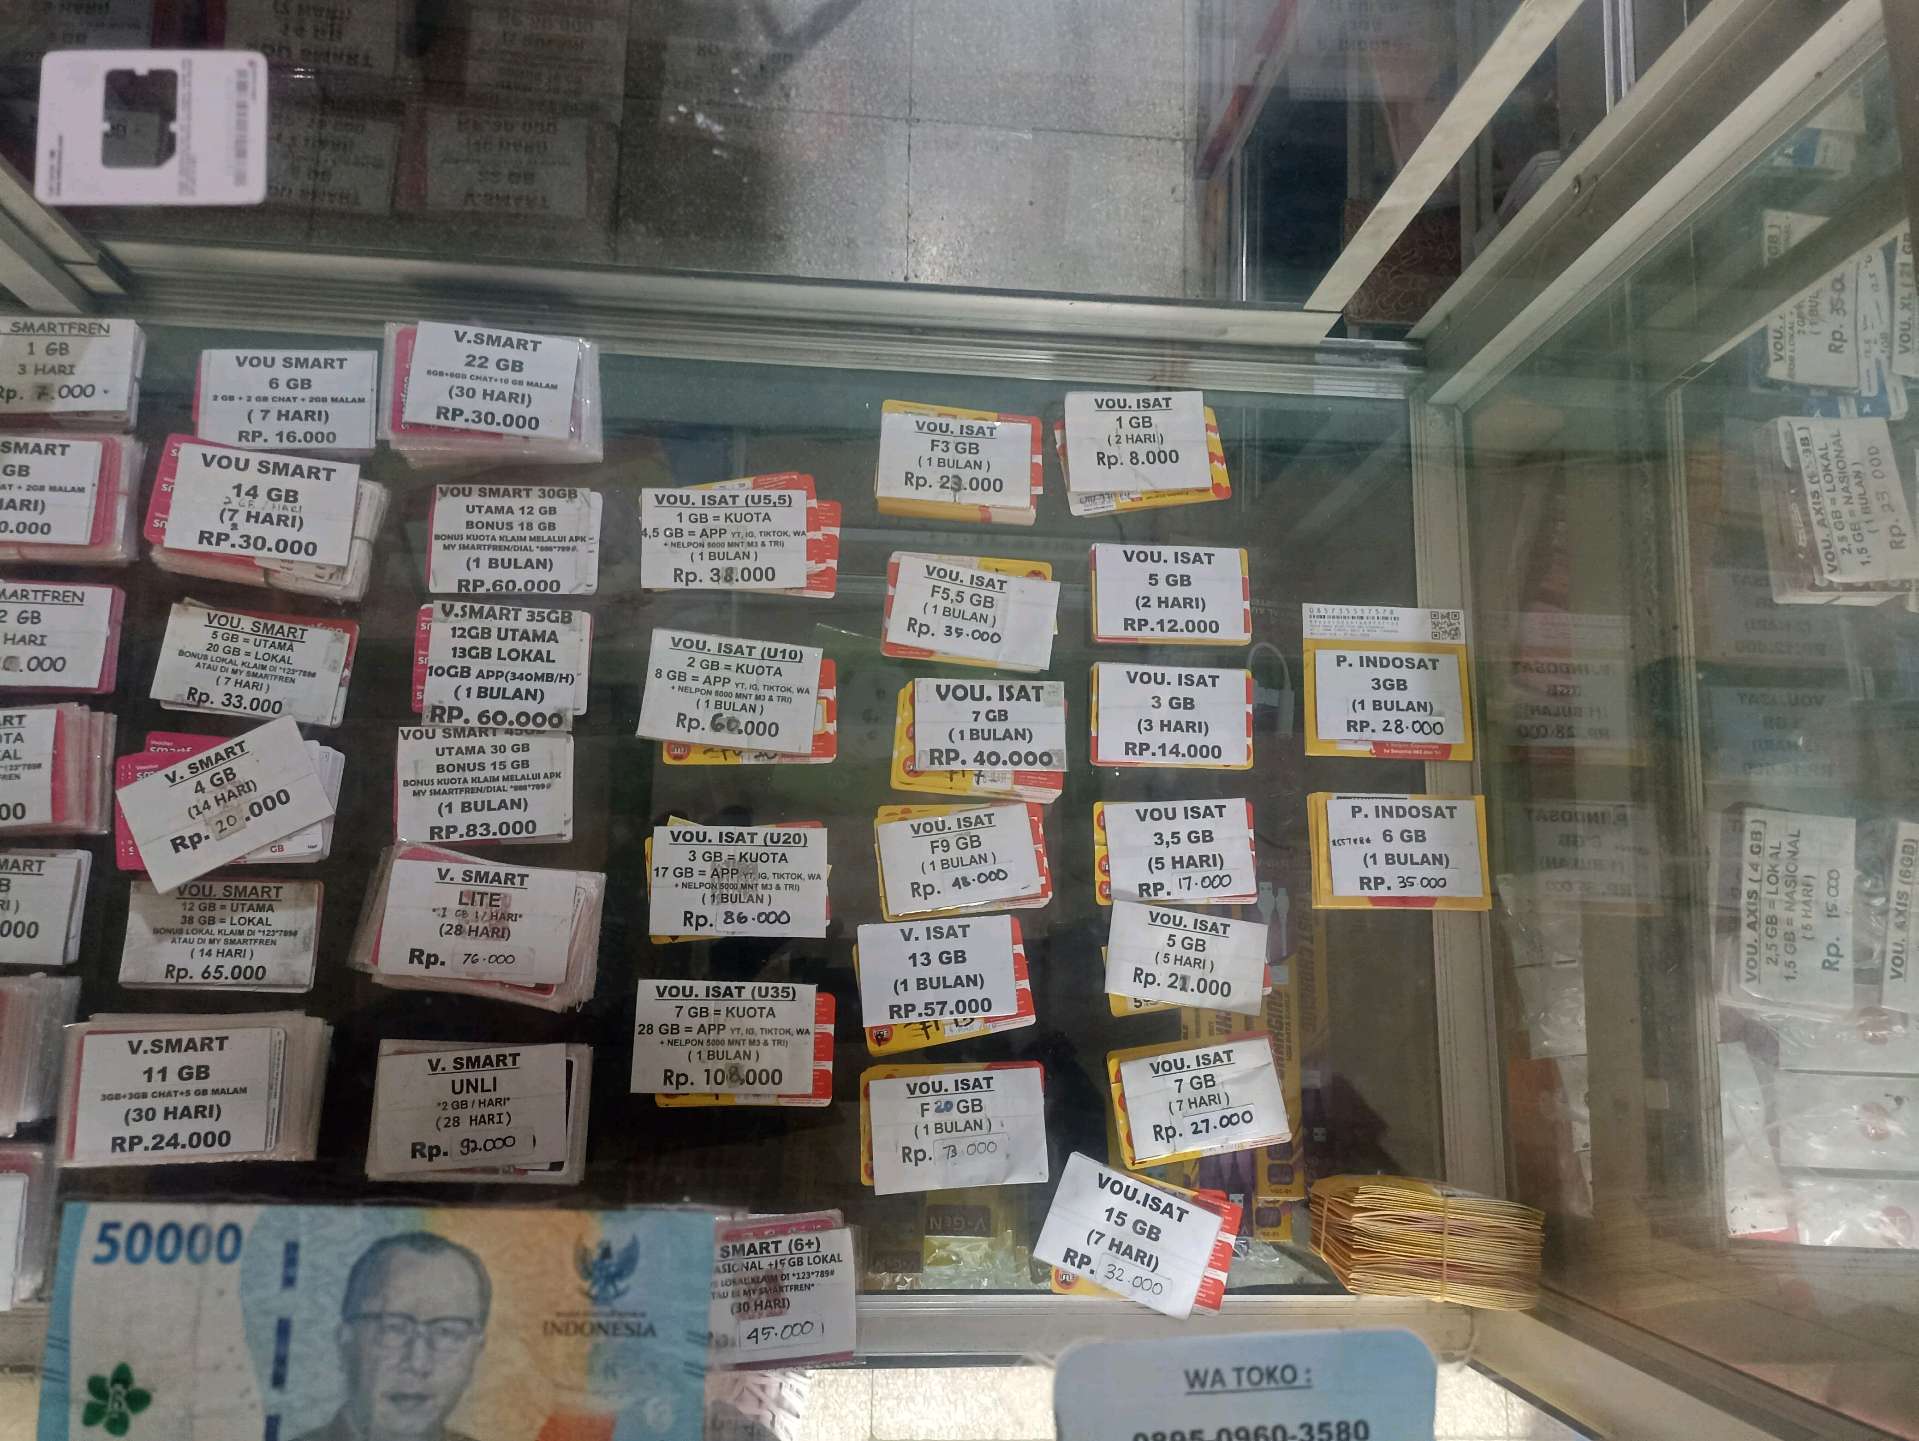 SMARTFREN
1 GB
3 HARI
Rp. 7.000
VOU SMART
6 GB
2 GB + 2 GB CHAT + 2GB MALAM
( 7 HARI )
RP. 16.000
V.SMART
22 GB
6GB+6GB CHAT+10 GB MALAM
(30 HARI)
RP.30.000
SMART
GB
AT + 2GB MALAM
HARI)
0.000
VOU SMART
14 GB
2 GB / HARI
(7 HARI)
RP.30.000
VOU SMART 30GB
UTAMA 12 GB
BONUS 18 GB
BONUS KUOTA KLAIM MELALUI APK
MY SMARTFREN/DIAL *888*789#
(1 BULAN)
RP.60.000
MARTFREN
2 GB
HARI
.000
VOU. SMART
5 GB = UTAMA
20 GB = LOKAL
BONUS LOKAL KLAIM DI *123*789#
ATAU DI MY SMARTFREN
( 7 HARI )
Rp. 33.000
V.SMART 35GB
12GB UTAMA
13GB LOKAL
10GB APP(340MB/H)
( 1 BULAN)
RP. 60.000
V. SMART
4 GB
(14 HARI)
Rp. 20.000
VOU SMART 45GB
UTAMA 30 GB
BONUS 15 GB
BONUS KUOTA KLAIM MELALUI APK
MY SMARTFREN/DIAL *888*789#
(1 BULAN)
RP.83.000
VOU. SMART
12 GB = UTAMA
38 GB = LOKAL
BONUS LOKAL KLAIM DI *123*789#
ATAU DI MY SMARTFREN
( 14 HARI )
Rp. 65.000
V. SMART
LITE
*1 GB / HARI*
(28 HARI)
Rp. 76.000
V.SMART
11 GB
3GB+3GB CHAT+5 GB MALAM
(30 HARI)
RP.24.000
V. SMART
UNLI
*2 GB / HARI*
(28 HARI)
Rp. 92.000
VOU. ISAT (U5,5)
1 GB = KUOTA
4,5 GB = APP YT, IG, TIKTOK, WA
+ NELPON 5000 MNT M3 & TRI)
( 1 BULAN )
Rp. 38.000
VOU. ISAT (U10)
2 GB = KUOTA
8 GB = APP YT, IG, TIKTOK, WA
+ NELPON 5000 MNT M3 & TRI)
( 1 BULAN )
Rp. 60.000
VOU. ISAT (U20)
3 GB = KUOTA
17 GB = APP YT, IG, TIKTOK, WA
+ NELPON 5000 MNT M3 & TRI)
( 1 BULAN )
Rp. 86.000
VOU. ISAT (U35)
7 GB = KUOTA
28 GB = APP YT, IG, TIKTOK, WA
+ NELPON 5000 MNT M3 & TRI)
( 1 BULAN )
Rp. 108.000
VOU. ISAT
F3 GB
( 1 BULAN )
Rp. 23.000
VOU. ISAT
F5,5 GB
( 1 BULAN )
Rp. 39.000
VOU. ISAT
7 GB
(1 BULAN)
RP. 40.000
VOU. ISAT
F9 GB
( 1 BULAN )
Rp. 48.000
V. ISAT
13 GB
(1 BULAN)
RP.57.000
VOU. ISAT
F 20 GB
( 1 BULAN )
Rp. 73.000
VOU. ISAT
1 GB
( 2 HARI )
Rp. 8.000
VOU. ISAT
5 GB
(2 HARI)
RP.12.000
VOU. ISAT
3 GB
(3 HARI)
RP.14.000
VOU ISAT
3,5 GB
(5 HARI)
RP. 17.000
VOU. ISAT
5 GB
( 5 HARI )
Rp. 21.000
VOU. ISAT
7 GB
( 7 HARI )
Rp. 27.000
VOU.ISAT
15 GB
(7 HARI)
RP. 32.000
085735557578
P. INDOSAT
3GB
(1 BULAN)
RP. 28.000
P. INDOSAT
6 GB
(1 BULAN)
RP. 35.000
VOU. AXIS
2,5 GB = LOKAL
1,5 GB = NASIONAL
( 1 BULAN )
VOU. AXIS ( 4 GB )
2,5 GB = LOKAL
1,5 GB = NASIONAL
( 5 HARI )
Rp. 15.000
VOU. AXIS (6GB)
VOU. XL (21 GB
50000
INDONESIA
SMART (6+)
ASIONAL +15 GB LOKAL
LOKAL KLAIM DI *123*789#
TAU DI MY SMARTFREN*
(30 HARI)
45.000
V-GEN
WA TOKO :
0895-0960-3580